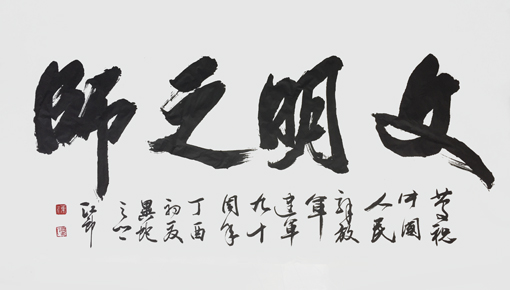 文明之師
恭祝
中國
人民
解放
軍
建軍
九十
周年
丁酉
初夏
異蛇